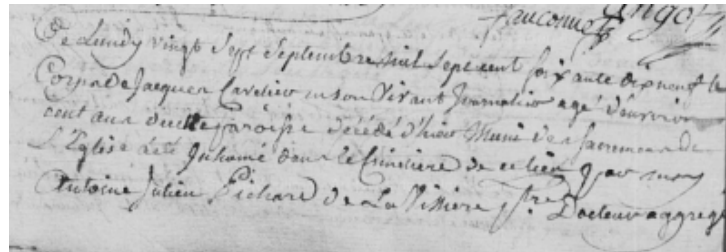 fauconnet
Ce Lundy vingt Sept Septembre mil Sept cent Soixante dix neuf le
Corps de Jacques Cavelier en son Vivant Journalier agé d'environ
cent ans de cette paroisse décédé d'hier Muni des Sacremens de
L'Eglise a été Inhumé dans le Cimitiere de ce lieu par moy
Antoine Julien Pichard de La Vissiere ptre Docteur aggregé